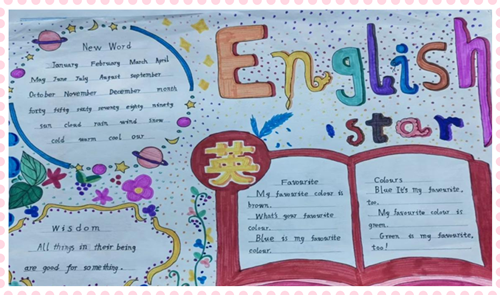 English
star
New Word
January February March April
May June July August september
October November December month
forty fifty sixty seventy eighty ninety
sun cloud rain wind snow
cold warm cool our
英
Favourite
My favourite colour is
brown.
What's your favourite
colour.
Blue is my favourite
colour.
Colours
Blue It's my favourite,
too.
My favourite colour is
green.
Green is my favourite,
too!
Wisdom
All things in their being
are good for something.